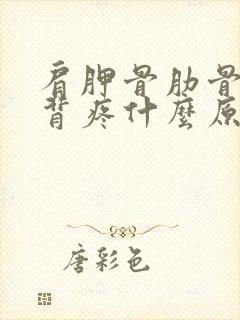 肩胛骨肋骨
背疼什麼原
唐彩色